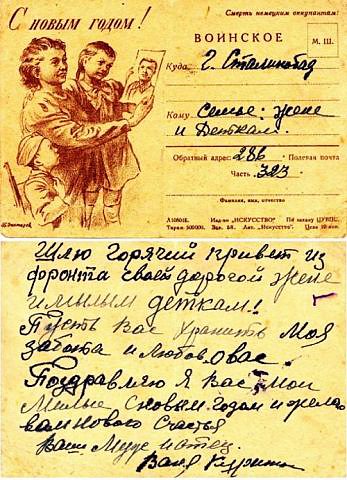 С НОВЫМ ГОДОМ!
Смерть немецким оккупантам!
ВОИНСКОЕ
М. Ш.
Куда г. Сталинабад
Кому Семье: жене
и Деткам.
Обратный адрес: 286 Полевая почта
Часть 323
Фамилия, имя, отчество
Изд-во „ИСКУССТВО"
Тираж 500000.
Шлю горячий привет из
фронта своей дорогой жене
и милым деткам!
Пусть вас хранить моя
забота и любов о вас.
Поздравляю я вас мои
милые с новым годом и желаю
вам нового счастья
Ваш муж и отец.
Ваня